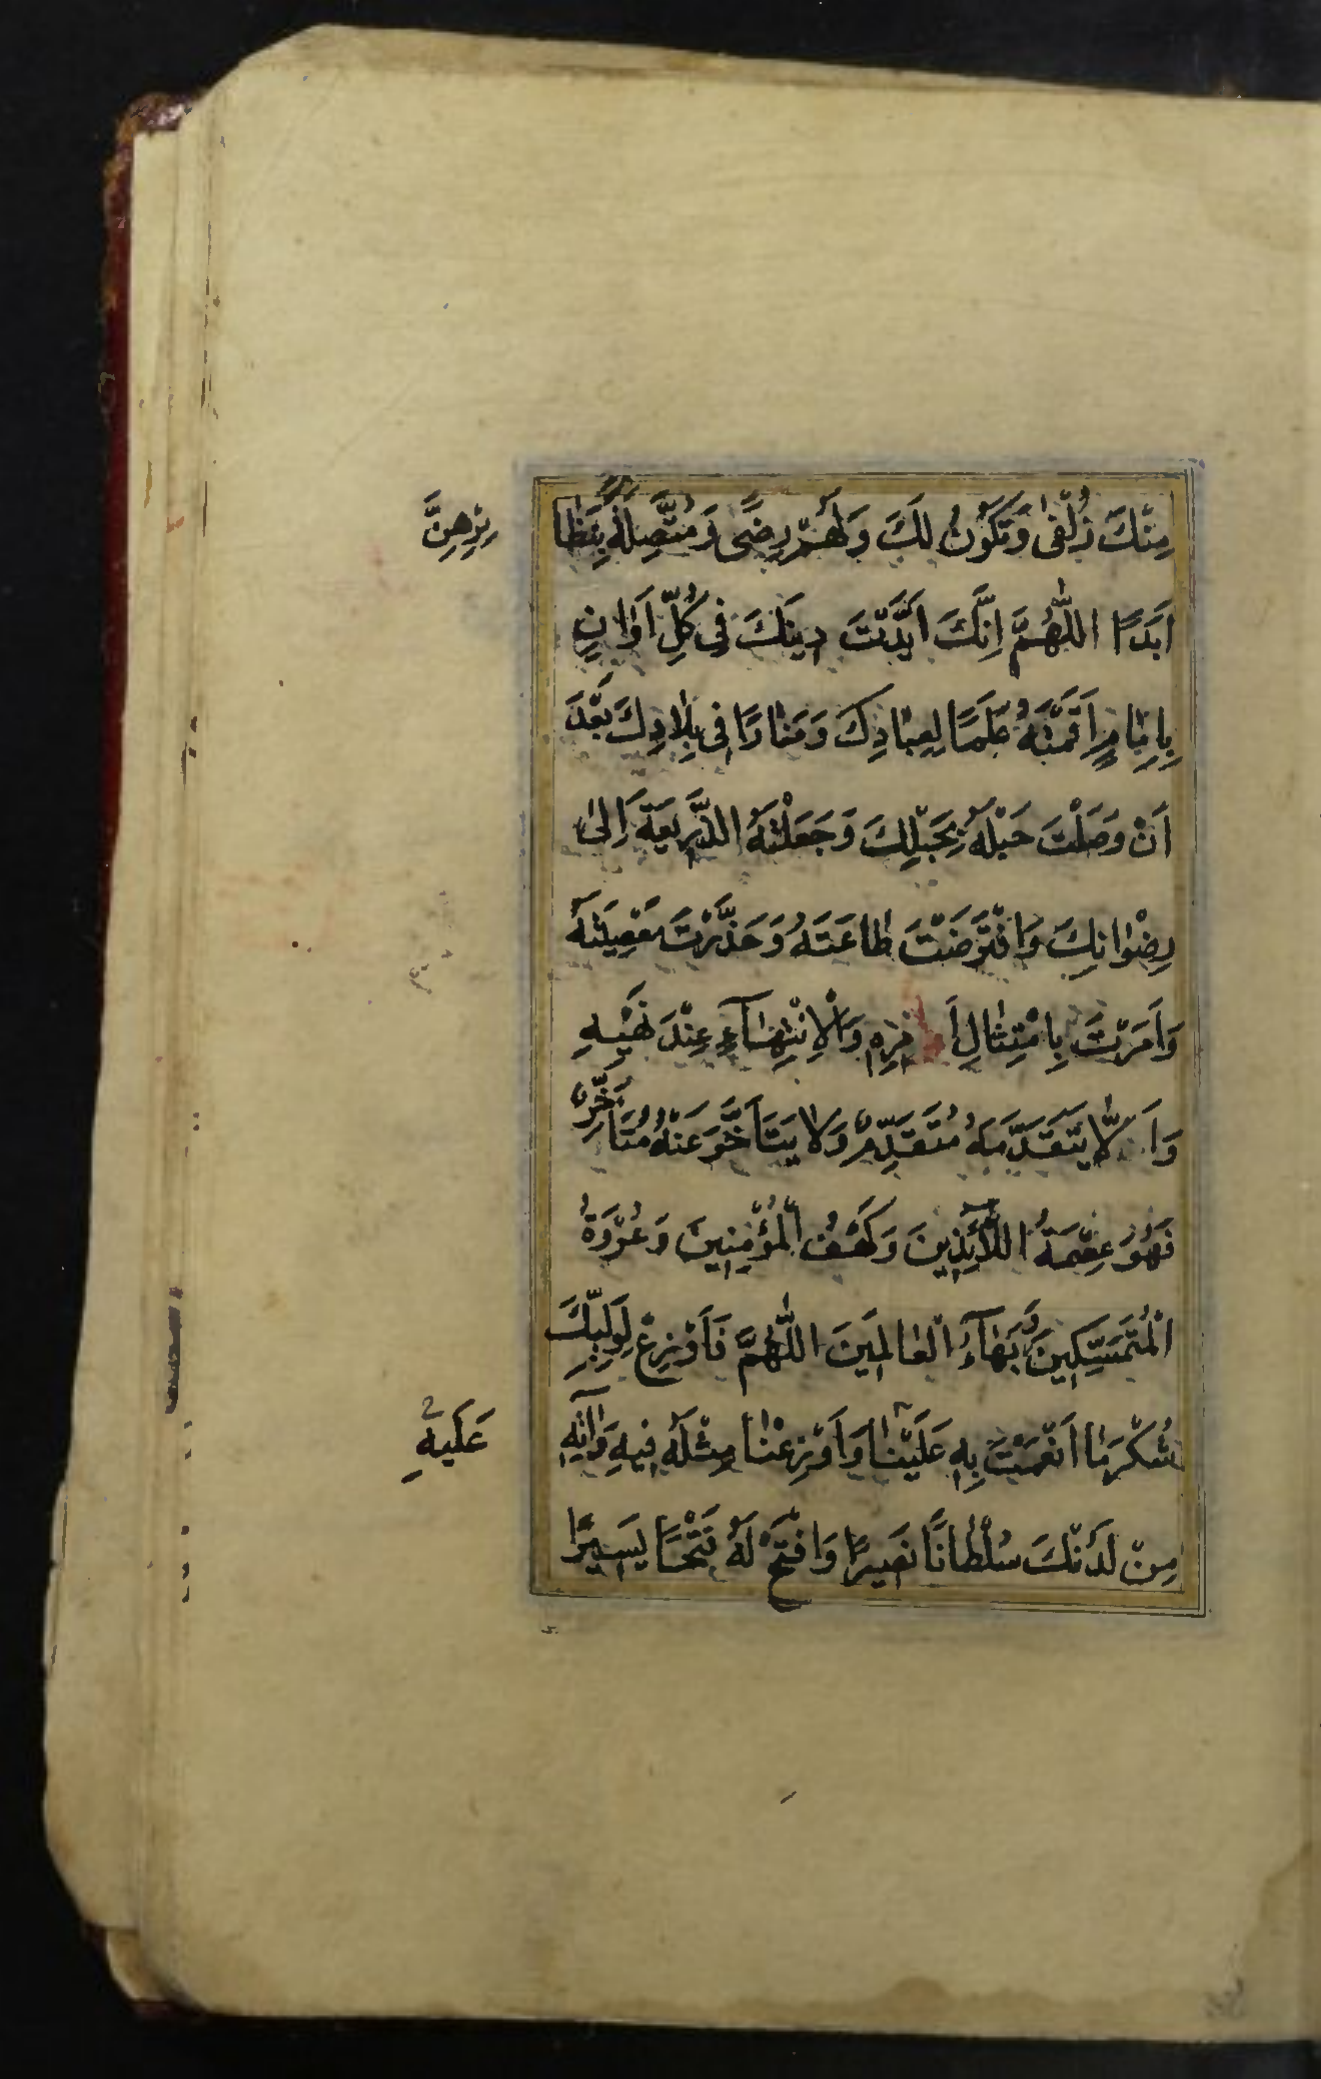 مِنْكَ زُلْفٰى وَتَكُوْنُ لَكَ وَلَهُمْ رِضًى وَمُتَّصِلَةً بِنَظَا
ئِرِهِنَّ
اَبَدًا اَللّٰهُمَّ اِنَّكَ اَيَّدْتَ دِينَكَ فِى كُلِّ اَوٰانٍ
بِاِمٰامٍ اَقَمْتَهُ عَلَمًا لِعِبٰادِكَ وَمَنٰارًا فِى بِلٰادِكَ بَعْدَ
اَنْ وَصَلْتَ حَبْلَهُ بِحَبْلِكَ وَجَعَلْتَهُ الذَّرِيعَةَ اِلىٰ
رِضْوٰانِكَ وَافْتَرَضْتَ طٰاعَتَهُ وَحَذَّرْتَ مَعْصِيَتَهُ
وَاَمَرْتَ بِامْتِثٰالِ اَوٰامِرِهِ وَالْاِنْتِهٰآءِ عِنْدَ نَهْيِهِ
وَاَلَّا يَتَقَدَّمَهُ مُتَقَدِّمٌ وَلٰا يَتَاَخَّرَ عَنْهُ مُتَاَخِّرٌ
فَهُوَ عِصْمَةُ اللّٰآئِذِينَ وَكَهْفُ الْمُؤْمِنِينَ وَعُرْوَةُ
الْمُتَمَسِّكِينَ وَبَهٰآءُ الْعٰالَمِينَ اَللّٰهُمَّ فَاَوْزِعْ لِوَلِيِّكَ
شُكْرَ مٰا اَنْعَمْتَ بِهِ عَلَيْنٰا وَاَوْزِعْنٰا مِثْلَهُ فِيهِ وَاٰتِهِ
عَلَيهِ
مِنْ لَدُنْكَ سُلْطٰانًا نَصِيرًا وَافْتَحْ لَهُ فَتْحًا يَسِيرًا